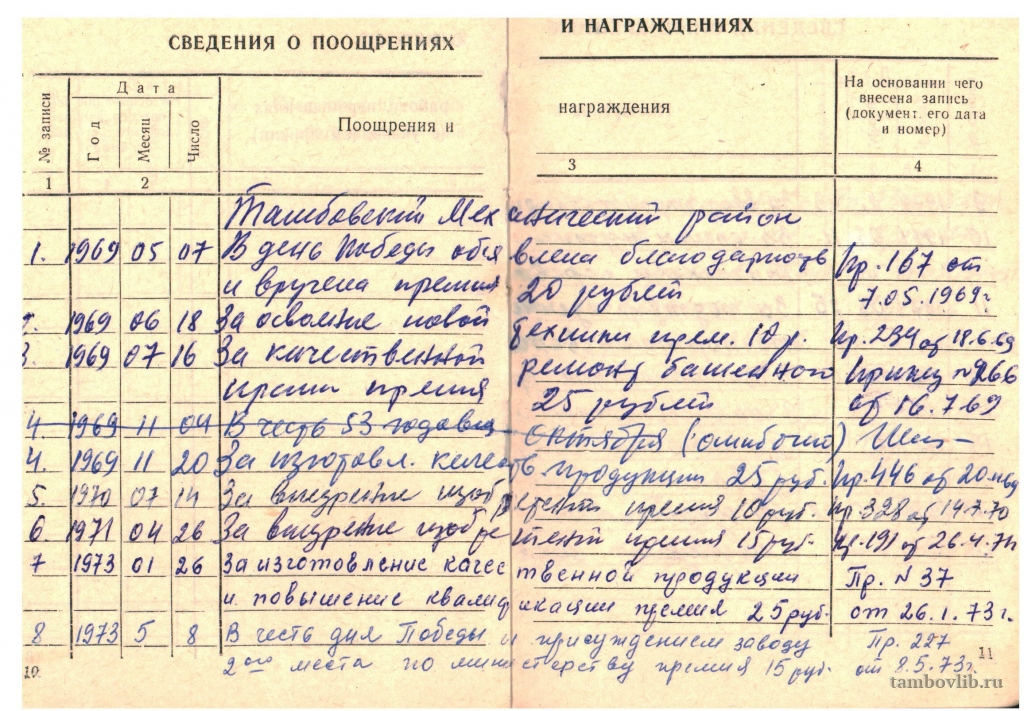 СВЕДЕНИЯ О ПООЩРЕНИЯХ И НАГРАЖДЕНИЯХ
№ записи Дата Поощрения и награждения На основании чего внесена запись (документ, его дата и номер)
Год Месяц Число
1 2 3 4
Тамбовский Механический район
1. 1969 05 07 В день Победы объявлена благодарность Пр. 167 от
и вручена премия 20 рублей 7.05.1969г
1969 06 18 За освоение новой техники прем. 10 р. Пр. 234 от 18.6.69
3. 1969 07 16 За качественной ремонт башенного Приказ № 266
премия 25 рублей от 16.7.69
4. 1969 11 04 В честь 53 годовщ Октября (ошибочно)
4. 1969 11 20 За изготовл. качеств. продукции 25 руб. Пр. 446 от 20
5. 1970 07 14 За внедрение изобретений премия 10 руб. Пр 328 от 14.7.70
6. 1971 04 26 За внедрение изобретений премия 15 руб. Пр. 191 от 26.4.71
7 1973 01 26 За изготовление качественной продукции Пр. N 37
и повышение квалификации премия 25 руб. от 26.1.73г.
8 1973 5 8 В честь дня Победы и присуждением заводу Пр. 227
2ого места по министерству премия 15 руб. от 8.5.73г.
10 11
tambovlib.ru